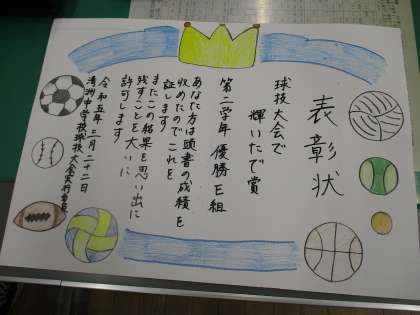 表彰状
球技大会で
輝いたで賞
第二学年 優勝 E組
あなた方は頭書の成績を
収めたのでこれを
証します
またこの結果を思い出に
残すことを大いに
許可します
令和五年三月二十二日
清洲中学校球技大会実行委員